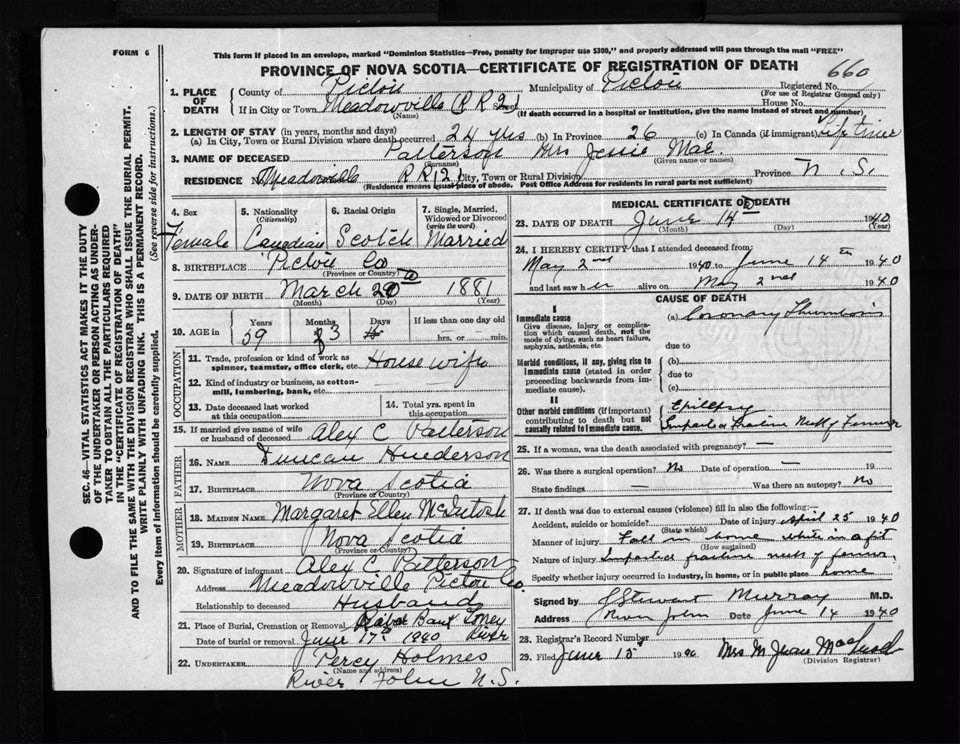 FORM 6
This form if placed in an envelope, marked "Dominion Statistics—Free, penalty for improper use $300," and properly addressed will pass through the mail "FREE"
PROVINCE OF NOVA SCOTIA—CERTIFICATE OF REGISTRATION OF DEATH
660
1. PLACE OF DEATH
County of Pictou Municipality of Pictou Registered No.
(For use of Registrar General only)
If in City or Town Meadowville (R R 2) Street House No.
(Name) (If death occurred in a hospital or institution, give the name instead of street and number)
2. LENGTH OF STAY (in years, months and days)
(a) In City, Town or Rural Division where death occurred 24 yrs (b) In Province 26 (c) In Canada (if immigrant) Life time
3. NAME OF DECEASED Patterson Mrs Jessie Mae
(Surname) (Given name or names)
RESIDENCE No. Meadowville R R (2) City, Town or Rural Division Province N. S.
(Residence means usual place of abode. Post Office Address for residents in rural parts not sufficient)
4. Sex Female
5. Nationality (Citizenship) Canadian
6. Racial Origin Scotch
7. Single, Married, Widowed or Divorced (write the word) Married
8. BIRTHPLACE Pictou Co
(Province or Country)
9. DATE OF BIRTH March 20 1881
(Month) (Day) (Year)
10. AGE in Years Months Days If less than one day old
59 3 hrs. or min.
OCCUPATION
11. Trade, profession or kind of work as spinner, teamster, office clerk, etc. Housewife
12. Kind of industry or business, as cotton-mill, lumbering, bank, etc.
13. Date deceased last worked at this occupation
14. Total yrs. spent in this occupation
15. If married give name of wife or husband of deceased Alex C Patterson
FATHER
16. Name Duncan Henderson
17. Birthplace Nova Scotia
(Province or Country)
MOTHER
18. Maiden Name Margaret Ellen McIntosh
19. Birthplace Nova Scotia
(Province or Country)
20. Signature of informant Alex C Patterson
Address Meadowville Pictou Co.
Relationship to deceased Husband
21. Place of Burial, Cremation or Removal Bank Toney River
Date of burial or removal June 17th 1940
22. UNDERTAKER Percy Holmes
(Name and address)
River John N.S.
MEDICAL CERTIFICATE OF DEATH
23. DATE OF DEATH June 14 1940
(Month) (Day) (Year)
24. I HEREBY CERTIFY that I attended deceased from:
May 2nd 1940 to June 14th 1940
and last saw her alive on May 2nd 1940
CAUSE OF DEATH
I
Immediate cause
Give disease, injury or complication which caused death, not the mode of dying, such as heart failure, asphyxia, asthenia, etc
(a) Coronary Thrombosis
due to
Morbid conditions, if any, giving rise to immediate cause (stated in order proceeding backwards from immediate cause).
(b)
due to
(c)
II
Other morbid conditions (if important) contributing to death but not causally related to immediate cause.
Epilepsy
Impacted fracture Neck of Femur
25. If a woman, was the death associated with pregnancy? —
26. Was there a surgical operation? No Date of operation — 19
State findings — Was there an autopsy? No
27. If death was due to external causes (violence) fill in also the following:—
Accident, suicide or homicide? Date of injury April 25 1940
(State which)
Manner of injury Fall in home while in a fit
(How sustained)
Nature of injury Impacted fracture neck of femur
Specify whether injury occurred in industry, in home, or in public place home
Signed by J Stewart Murray M.D.
Address River John Date June 14 1940
28. Registrar's Record Number
29. Filed June 15 1940 Mrs M Jean MacLeod
(Division Registrar)
SEC. 46—VITAL STATISTICS ACT MAKES IT THE DUTY OF THE UNDERTAKER OR PERSON ACTING AS UNDERTAKER TO OBTAIN ALL THE PARTICULARS REQUIRED IN THE "CERTIFICATE OF REGISTRATION OF DEATH"
AND TO FILE THE SAME WITH THE DIVISION REGISTRAR WHO SHALL ISSUE THE BURIAL PERMIT.
WRITE PLAINLY WITH UNFADING INK. THIS IS A PERMANENT RECORD.
Every item of information should be carefully supplied. (See reverse side for instructions.)